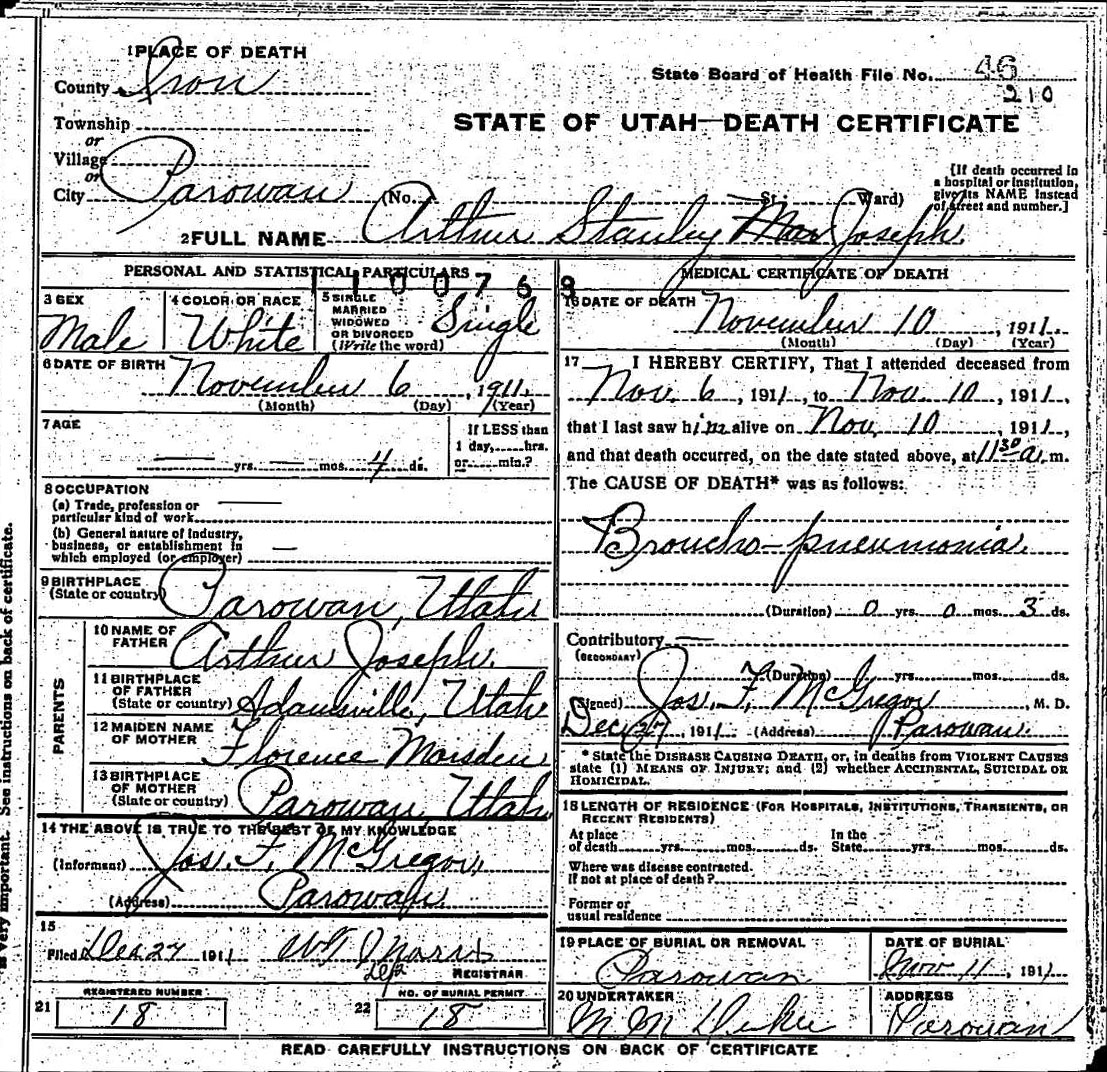 1 PLACE OF DEATH
County Iron
State Board of Health File No. 46
210
Township
or
Village
or
City Parowan (No. St. Ward)
STATE OF UTAH—DEATH CERTIFICATE
[If death occurred in
a hospital or institution,
give its NAME instead
of street and number.]
2 FULL NAME Arthur Stanley Joseph
PERSONAL AND STATISTICAL PARTICULARS
1100769
3 SEX
Male
4 COLOR OR RACE
White
5 SINGLE
MARRIED
WIDOWED
OR DIVORCED
(Write the word)
Single
6 DATE OF BIRTH
November 6, 1911
(Month) (Day) (Year)
7 AGE
— yrs. — mos. 4 ds.
If LESS than
1 day, hrs.
or min.?
8 OCCUPATION
(a) Trade, profession or
particular kind of work —
(b) General nature of industry,
business, or establishment in
which employed (or employer) —
9 BIRTHPLACE
(State or country) Parowan, Utah
PARENTS
10 NAME OF
FATHER
Arthur Joseph.
11 BIRTHPLACE
OF FATHER
(State or country) Adamsville, Utah
12 MAIDEN NAME
OF MOTHER
Florence Marsden
13 BIRTHPLACE
OF MOTHER
(State or country) Parowan, Utah
14 THE ABOVE IS TRUE TO THE BEST OF MY KNOWLEDGE
(Informant) Jos. F. McGregor,
(Address) Parowan
15
Filed Dec 27 1911
Dep
REGISTRAR
REGISTERED NUMBER
21 18
NO. OF BURIAL PERMIT
22 18
MEDICAL CERTIFICATE OF DEATH
16 DATE OF DEATH
November 10, 1911.
(Month) (Day) (Year)
17 I HEREBY CERTIFY, That I attended deceased from
Nov. 6, 1911, to Nov. 10, 1911,
that I last saw him alive on Nov. 10, 1911,
and that death occurred, on the date stated above, at 11 30 a. m.
The CAUSE OF DEATH* was as follows:
Broncho-pneumonia.
(Duration) 0 yrs. 0 mos. 3 ds.
Contributory —
(SECONDARY)
(Duration) yrs. mos. ds.
(Signed) Jos. F. McGregor, M. D.
Dec 27, 1911 (Address) Parowan.
* State the DISEASE CAUSING DEATH, or, in deaths from VIOLENT CAUSES
state (1) MEANS OF INJURY; and (2) whether ACCIDENTAL, SUICIDAL OR
HOMICIDAL.
18 LENGTH OF RESIDENCE (FOR HOSPITALS, INSTITUTIONS, TRANSIENTS, OR
RECENT RESIDENTS)
At place
of death yrs. mos. ds.
In the
State yrs. mos. ds.
Where was disease contracted.
If not at place of death?
Former or
usual residence
19 PLACE OF BURIAL OR REMOVAL
Parowan
DATE OF BURIAL
Nov 11, 1911
20 UNDERTAKER
ADDRESS
Parowan
READ CAREFULLY INSTRUCTIONS ON BACK OF CERTIFICATE
very important. See instructions on back of certificate.